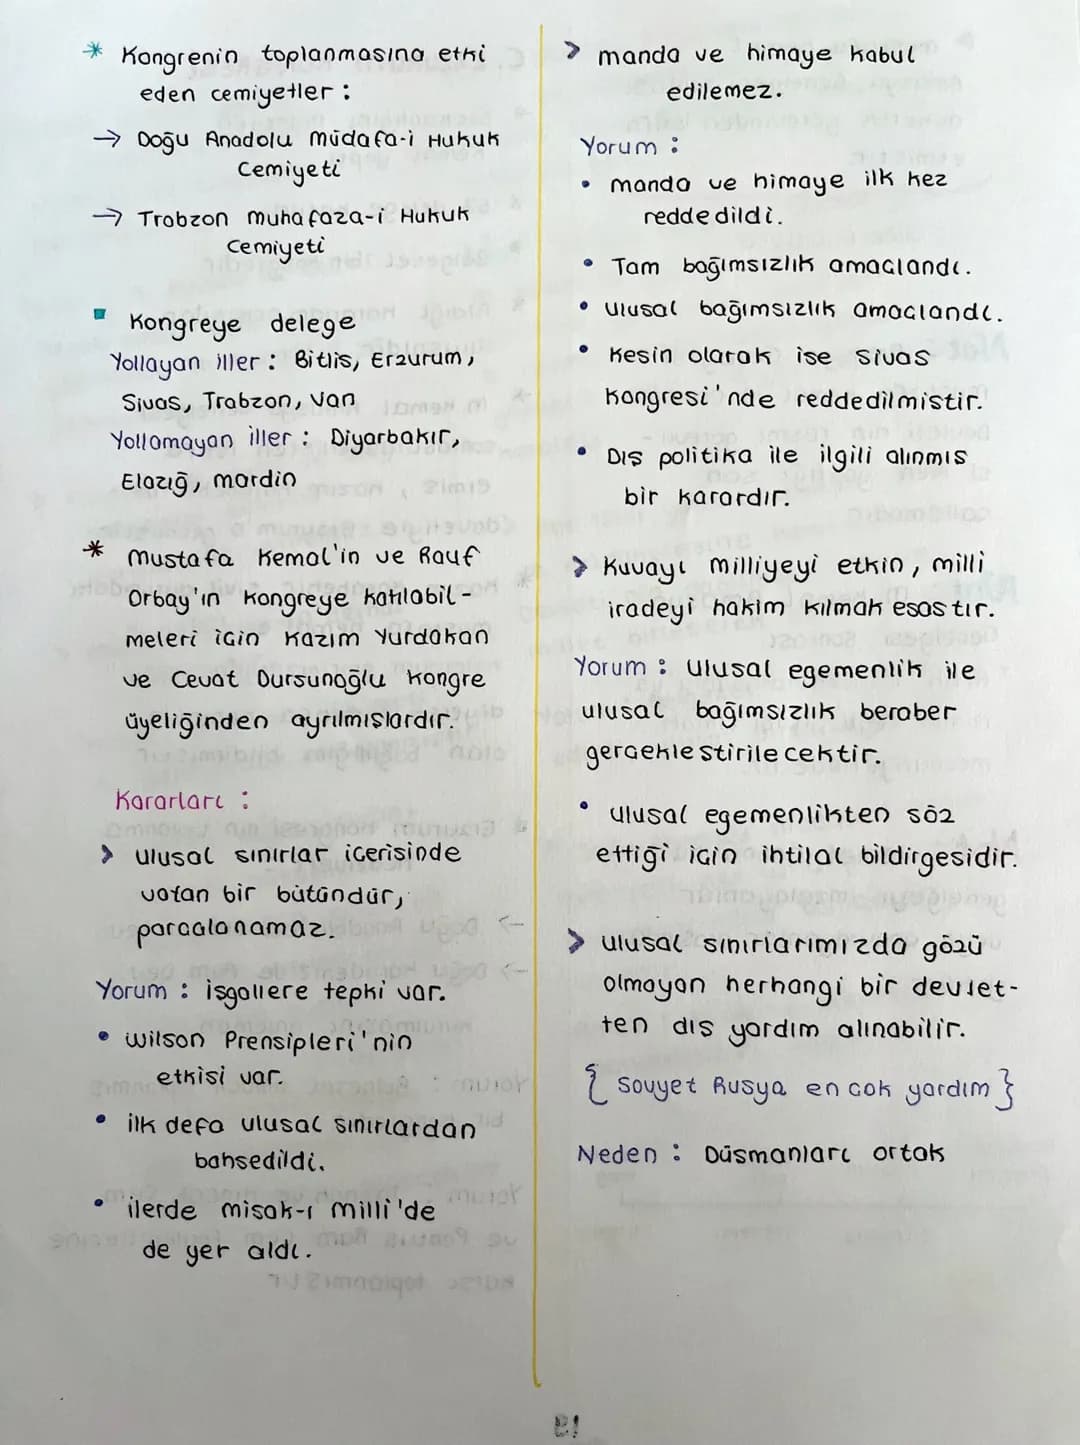 * Kongrenin toplanmasına etki
eden cemiyetler :
→ Doğu Anadolu Müdafa-i Hukuk
Cemiyeti
→ Trabzon muhafaza-i Hukuk
Cemiyeti
Kongreye delege
Yollayan iller : Bitlis, Erzurum,
Sivas, Trabzon, Van
Yollamayan iller : Diyarbakır,
Elazığ, mardin
* Mustafa Kemal'in ve Rauf
Orbay'ın kongreye katılabil-
meleri için Kazım Yurdakan
ve Cevat Dursunoğlu kongre
üyeliğinden ayrılmışlardır.
Kararları :
> ulusal sınırlar içerisinde
vatan bir bütündür,
parçalanamaz.
Yorum : işgallere tepki var.
• Wilson Prensipleri'nin
etkisi var.
• ilk defa ulusal sınırlardan
bahsedildi.
• ilerde misak-ı milli'de
de yer aldı.
> manda ve himaye kabul
edilemez.
Yorum :
• manda ve himaye ilk kez
reddedildi.
• Tam bağımsızlık amaçlandı.
• ulusal bağımsızlık amaçlandı.
• Kesin olarak ise Sivas
Kongresi'nde reddedilmistir.
• Dış politika ile ilgili alınmıs
bir karardır.
> Kuvayı milliyeyi etkin, milli
iradeyi hakim kılmak esastır.
Yorum : ulusal egemenlik ile
ulusal bağımsızlık beraber
gerçekleştirilecektir.
• ulusal egemenlikten söz
ettiği için ihtilal bildirgesidir.
> ulusal sınırlarımızda gözü
olmayan herhangi bir devlet-
ten dıs yardım alınabilir.
{ Sovyet Rusya en çok yardım }
Neden : Düsmanları ortak